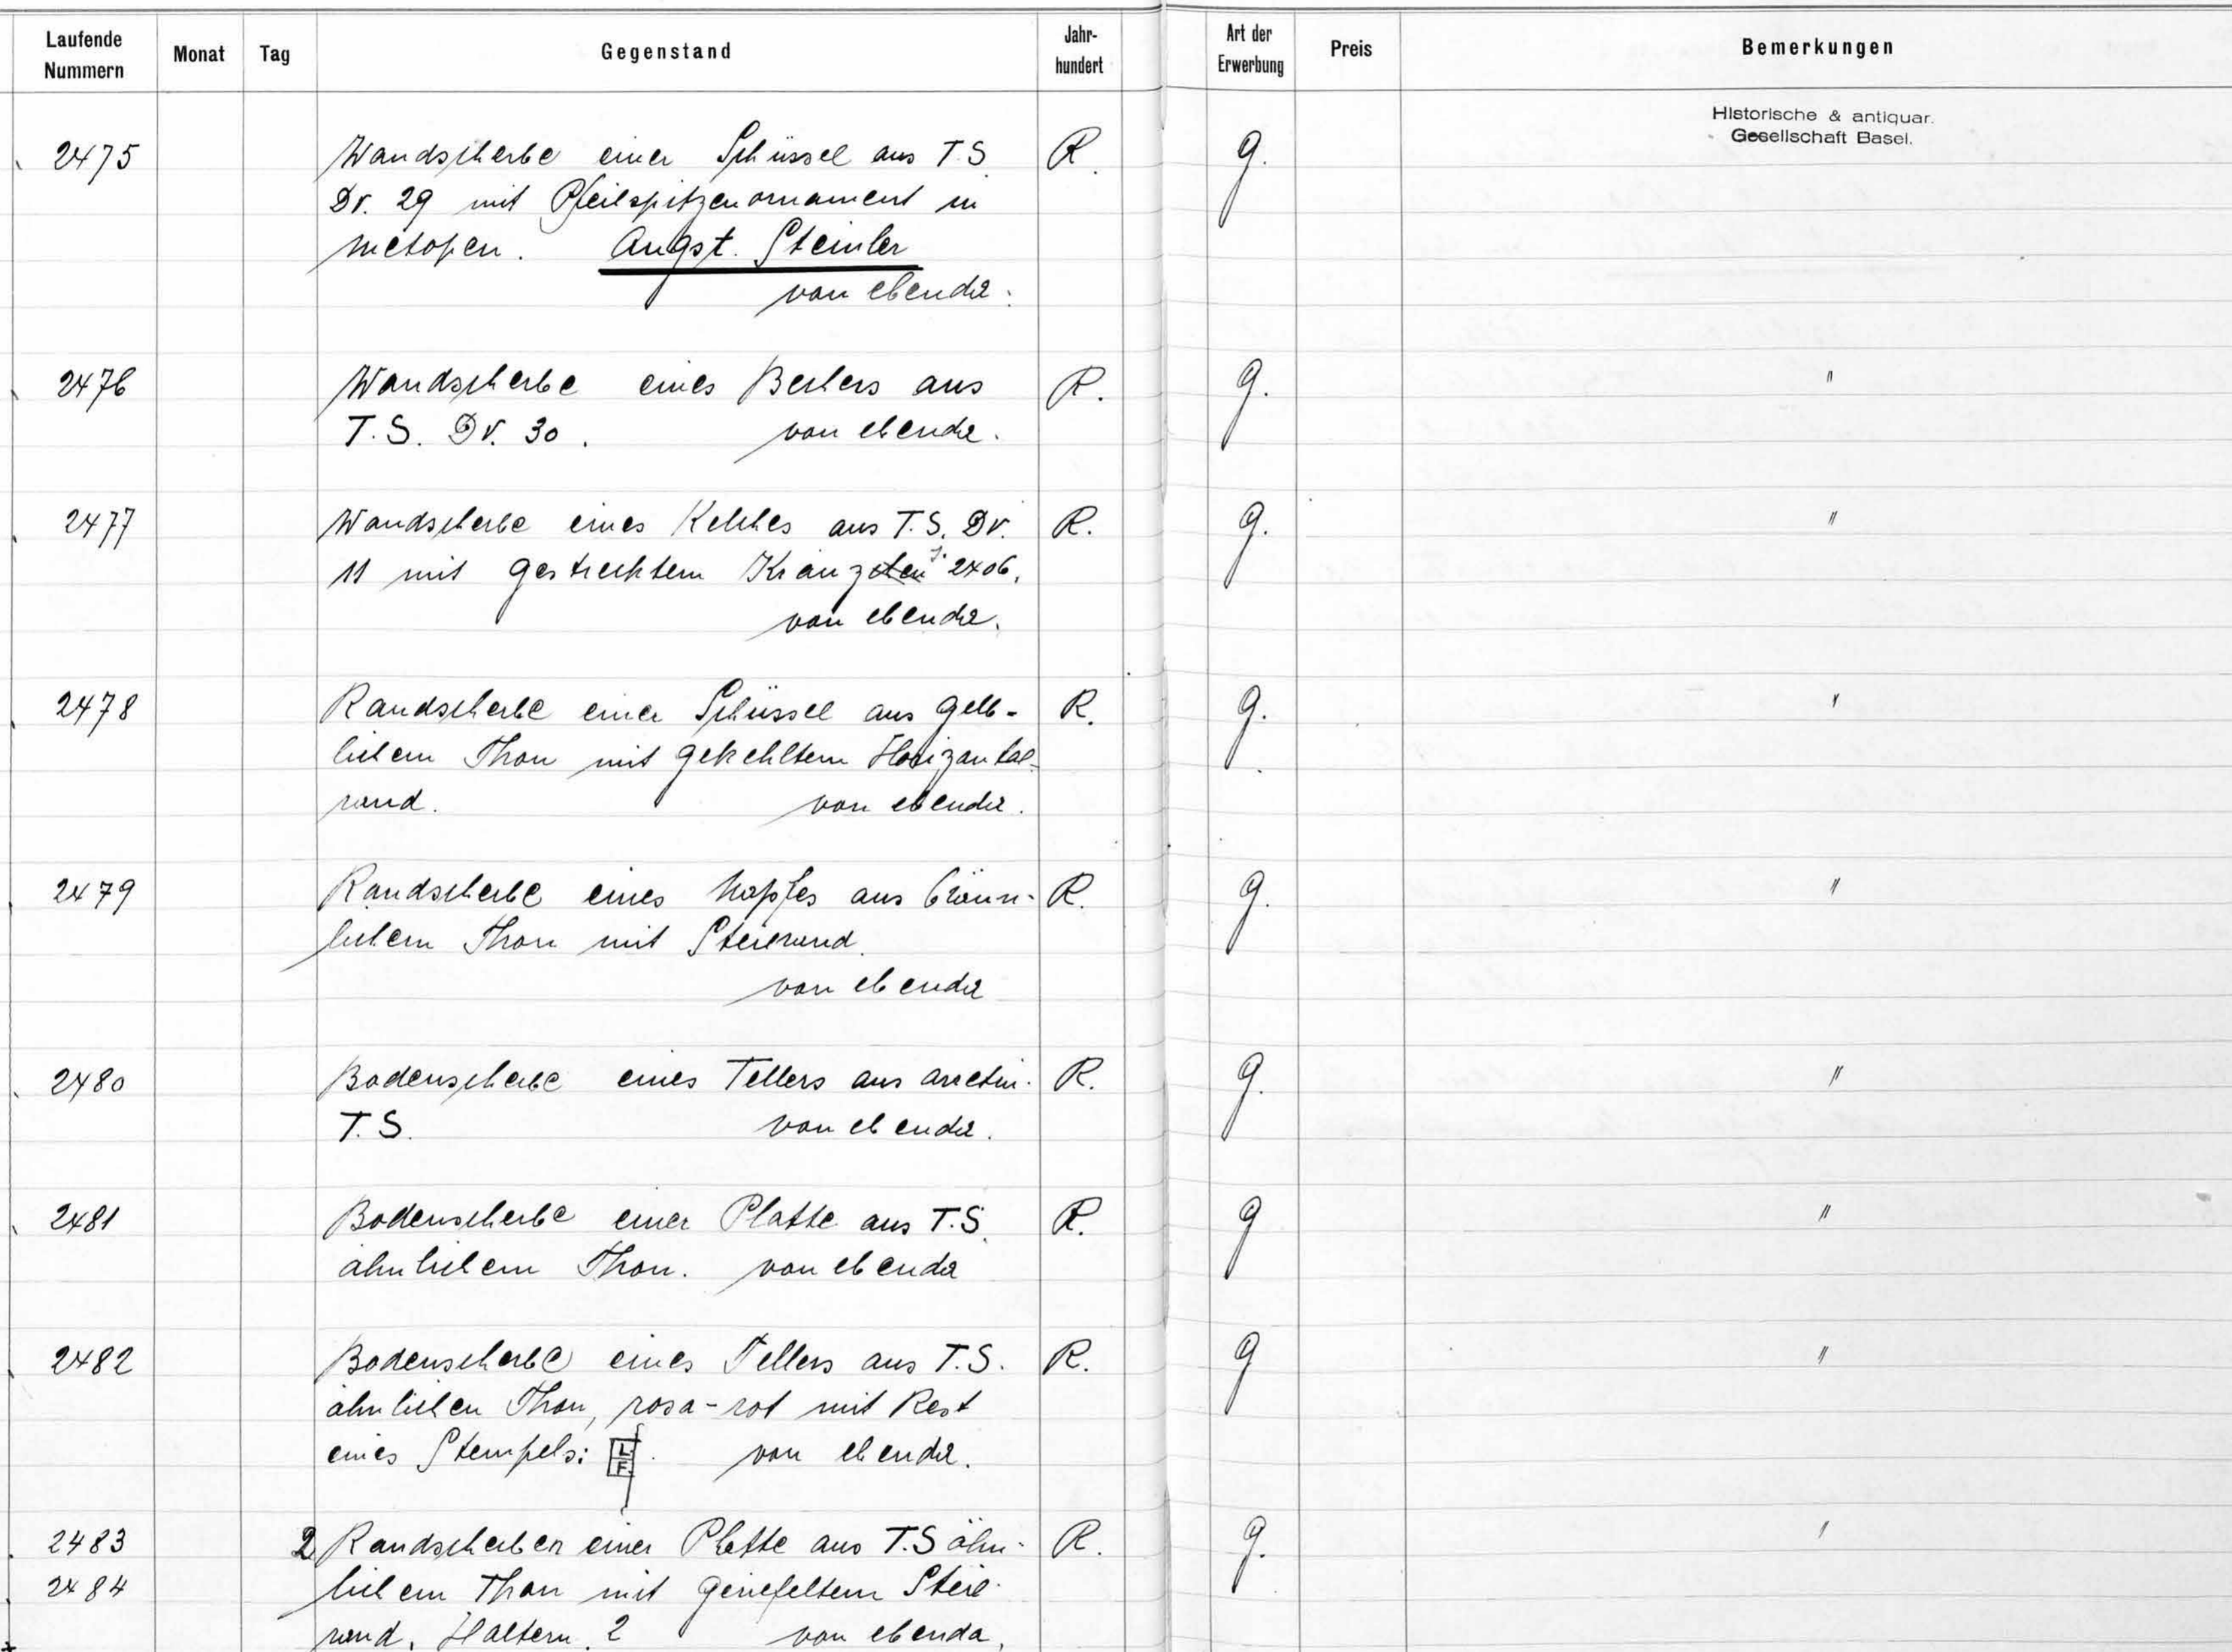 Laufende Nummern Monat Tag Gegenstand Jahr-hundert Art der Erwerbung Preis Bemerkungen
Historische & antiquar.
Gesellschaft Basel.
2475 Wandscherbe einer Schüssel aus T.S. R. g.
Dr. 29 mit Pfeilspitzenornament in
Metopen. Augst. Steinler
von ebenda.
2476 Wandscherbe eines Bechers aus R. g. "
T.S. Dr. 30. von ebenda.
2477 Wandscherbe eines Kelches aus T.S. Dr. R. g. "
11 mit gestrecktem Kranz 2406.
von ebenda.
2478 Randscherbe einer Schüssel aus gelb- R. g. "
lichem Thon mit gekehltem Horizontal-
rand. von ebenda.
2479 Randscherbe eines Napfes aus bräun- R. g. "
lichem Thon mit Steilrand.
von ebenda
2480 Bodenscherbe eines Tellers aus arretin. R. g. "
T.S. von ebenda.
2481 Bodenscherbe einer Platte aus T.S. R. g "
ähnlichem Thon. von ebenda
2482 Bodenscherbe eines Tellers aus T.S. R. g "
ähnlichen Thon, rosa-rot mit Rest
eines Stempels: L F. von ebenda.
2483 2 Randscherben einer Platte aus T.S ähn- R. g. "
2484 lichem Thon mit geriefeltem Steil-
rand, Haltern. 2 von ebenda.